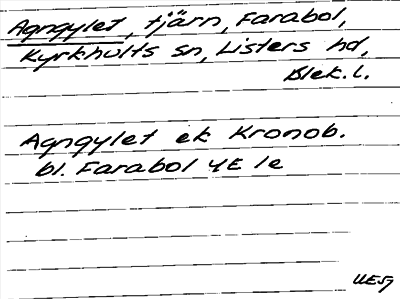 Agngylet, tjärn, Farabol,
Kyrkhults sn, Listers hd,
Blek. l.
Agngylet ek Kronob.
bl. Farabol 4E 1e